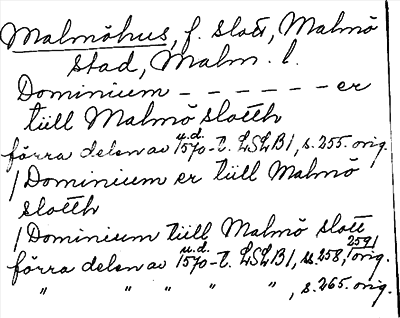 Malmöhus, f. slott, Malmö
stad, Malm. l.
Dominium - - - - - - er
tiill Malmö slotth
förra delen av u.d. 1570-t. LSLB1, s. 255. orig.
/ Dominium er tiill Malmö
slotth
/ Dominium tiill Malmö slott
förra delen av u.d. 1570-t. LSLB1, s. 258, 259/ orig.
" " " " " , s. 265. orig.